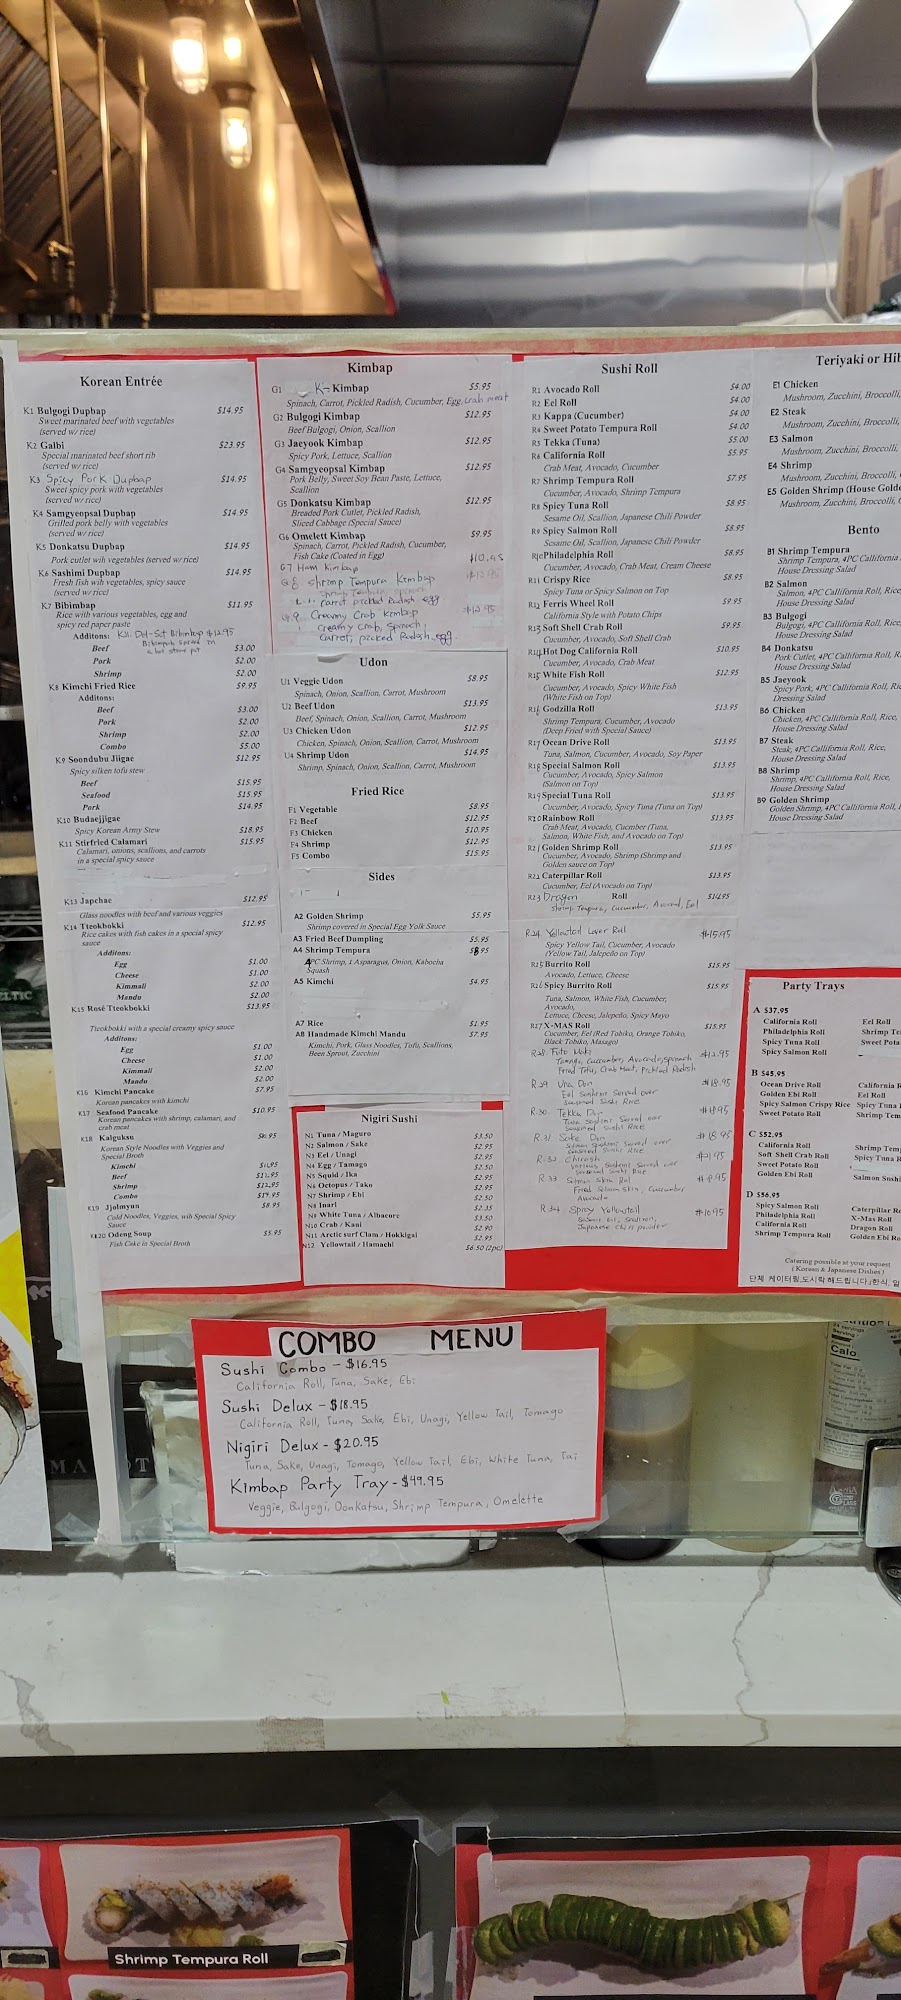 Korean Entrée
K1 Bulgogi Dupbap $14.95
Sweet marinated beef with vegetables
(served w/ rice)
K2 Galbi $23.95
Special marinated beef short rib
(served w/ rice)
K3 Spicy Pork Dupbap $14.95
Sweet spicy pork with vegetables
(served w/ rice)
K4 Samgyeopsal Dupbap $14.95
Grilled pork belly with vegetables
(served w/ rice)
K5 Donkatsu Dupbap $14.95
Pork cutlet wih vegetables (served w/ rice)
K6 Sashimi Dupbap $14.95
Fresh fish wih vegetables, spicy sauce
(served w/ rice)
K7 Bibimbap $11.95
Rice with various vegetables, egg and
spicy red paper paste
Additons: Dol-Sot Bibimbap $12.95
Beef $3.00
Pork $2.00
Shrimp $2.00
K8 Kimchi Fried Rice $9.95
Additons:
Beef $3.00
Pork $2.00
Shrimp $2.00
Combo $5.00
K9 Soondubu Jjigae $12.95
Spicy silken tofu stew
Beef $15.95
Seafood $15.95
Pork $14.95
K10 Budaejjigae
Spicy Korean Army Stew $18.95
K11 Stirfried Calamari $15.95
Calamari, onions, scallions, and carrots
in a special spicy sauce
K13 Japchae $12.95
Glass noodles with beef and various veggies
K14 Tteokbokki $12.95
Rice cakes with fish cakes in a special spicy
sauce
Additons:
Egg $1.00
Cheese $1.00
Kimmali $2.00
Mandu $2.00
K15 Rosé Tteokbokki $13.95
Tteokbokki with a special creamy spicy sauce
Additons:
Egg $1.00
Cheese $1.00
Kimmali $2.00
Mandu $2.00
K16 Kimchi Pancake $7.95
Korean pancakes with kimchi
K17 Seafood Pancake $10.95
Korean pancakes with shrimp, calamari, and
crab meat
K18 Kalguksu
Korean Style Noodles with Veggies and
Special Broth
Kimchi
Beef
Shrimp $12.95
Combo
K19 Jjolmyun $8.95
Cold Noodles, Veggies, wih Special Spicy
Sauce
K20 Odeng Soup $5.95
Fish Cake in Special Broth
Kimbap
G1 K-Kimbap $5.95
Spinach, Carrot, Pickled Radish, Cucumber, Egg, crab meat
G2 Bulgogi Kimbap $12.95
Beef Bulgogi, Onion, Scallion
G3 Jaeyook Kimbap $12.95
Spicy Pork, Lettuce, Scallion
G4 Samgyeopsal Kimbap $12.95
Pork Belly, Sweet Soy Bean Paste, Lettuce,
Scallion
G5 Donkatsu Kimbap $12.95
Breaded Pork Cutlet, Pickled Radish,
Sliced Cabbage (Special Sauce)
G6 Omelett Kimbap $9.95
Spinach, Carrot, Pickled Radish, Cucumber,
Fish Cake (Coated in Egg)
G7 Ham Kimbap $10.95
G8 Shrimp Tempura Kimbap $12.95
Shrimp Tempura, spinach
carrot pickled Radish egg
G9 Creamy Crab kimbap $12.95
creamy crab, spinach,
carrot, picked Radish, egg.
Udon
U1 Veggie Udon $8.95
Spinach, Onion, Scallion, Carrot, Mushroom
U2 Beef Udon $13.95
Beef, Spinach, Onion, Scallion, Carrot, Mushroom
U3 Chicken Udon $12.95
Chicken, Spinach, Onion, Scallion, Carrot, Mushroom
U4 Shrimp Udon $14.95
Shrimp, Spinach, Onion, Scallion, Carrot, Mushroom
Fried Rice
F1 Vegetable $8.95
F2 Beef $12.95
F3 Chicken $10.95
F4 Shrimp $12.95
F5 Combo $15.95
Sides
A2 Golden Shrimp $5.95
Shrimp covered in Special Egg Yolk Sauce
A3 Fried Beef Dumpling $5.95
A4 Shrimp Tempura $8.95
4PC Shrimp, 1 Asparagus, Onion, Kabocha
Squash
A5 Kimchi $4.95
A7 Rice $1.95
A8 Handmade Kimchi Mandu $7.95
Kimchi, Pork, Glass Noodles, Tofu, Scallions,
Been Sprout, Zucchini
Nigiri Sushi
N1 Tuna / Maguro $3.50
N2 Salmon / Sake $2.95
N3 Eel / Unagi $2.95
N4 Egg / Tamago $2.50
N5 Squid / Ika $2.95
N6 Octopus / Tako $2.95
N7 Shrimp / Ebi $2.50
N8 Inari $2.35
N9 White Tuna / Albacore $3.50
N10 Crab / Kani $2.90
N11 Arctic surf Clam / Hokkigai $2.95
N12 Yellowtail / Hamachi $6.50 (2pc)
Sushi Roll
R1 Avocado Roll $4.00
R2 Eel Roll $4.00
R3 Kappa (Cucumber) $4.00
R4 Sweet Potato Tempura Roll $4.00
R5 Tekka (Tuna) $5.00
R6 California Roll $5.95
Crab Meat, Avocado, Cucumber
R7 Shrimp Tempura Roll $7.95
Cucumber, Avocado, Shrimp Tempura
R8 Spicy Tuna Roll $8.95
Sesame Oil, Scallion, Japanese Chili Powder
R9 Spicy Salmon Roll $8.95
Sesame Oil, Scallion, Japanese Chili Powder
R10 Philadelphia Roll $8.95
Cucumber, Avocado, Crab Meat, Cream Cheese
R11 Crispy Rice $8.95
Spicy Tuna or Spicy Salmon on Top
R12 Ferris Wheel Roll $9.95
California Style with Potato Chips
R13 Soft Shell Crab Roll $9.95
Cucumber, Avocado, Soft Shell Crab
R14 Hot Dog California Roll $10.95
Cucumber, Avocado, Crab Meat
R15 White Fish Roll $12.95
Cucumber, Avocado, Spicy White Fish
(White Fish on Top)
R16 Godzilla Roll $13.95
Shrimp Tempura, Cucumber, Avocado
(Deep Fried with Special Sauce)
R17 Ocean Drive Roll $13.95
Tuna, Salmon, Cucumber, Avocado, Soy Paper
R18 Special Salmon Roll $13.95
Cucumber, Avocado, Spicy Salmon
(Salmon on Top)
R19 Special Tuna Roll $13.95
Cucumber, Avocado, Spicy Tuna (Tuna on Top)
R20 Rainbow Roll $13.95
Crab Meat, Avocado, Cucmber (Tuna,
Salmon, White Fish, and Avocado on Top)
R21 Golden Shrimp Roll $13.95
Cucumber, Avocado, Shrimp (Shrimp and
Golden sauce on Top)
R22 Caterpillar Roll $13.95
Cucumber, Eel (Avocado on Top)
R23 Dragon Roll $14.95
Shrimp Tempura, Cucumber, Avocado, Eel
R24 Yellowtail Lover Roll $15.95
Spicy Yellow Tail, Cucumber, Avocado
(Yellow Tail, Jalepeño on Top)
R25 Burrito Roll $15.95
Avocado, Lettuce, Cheese
R26 Spicy Burrito Roll $15.95
Tuna, Salmon, White Fish, Cucumber,
Avocado,
Lettuce, Cheese, Jalepeño, Spicy Mayo
R27 X-MAS Roll $15.95
Cucumber, Eel (Red Tobiko, Orange Tobiko,
Black Tobiko, Masago)
R28 Futo Maki $12.95
Tamago, Cucumber, Avocado, spinach
Fried Tofu, Crab Meat, Pickled Radish
R29 Una Don $18.95
Eel Sashimi Served over
seasoned Sushi Rice
R30 Tekka Don $18.95
Tuna Sashimi Served over
seasoned sushi Rice
R31 Sake Don $18.95
Salmon Sashimi Served over
seasoned Sushi Rice
R32 Chirashi $21.95
various Sashimi Served over
seasoned Sushi Rice
R33 Salmon Skin Roll $8.95
Fried Salmon Skin, Cucumber
Avocado
R34 Spicy Yellowtail $10.95
Sesame oil, Scallion,
Japanese Chili powder
Teriyaki or Hib
E1 Chicken
Mushroom, Zucchini, Broccolli,
E2 Steak
Mushroom, Zucchini, Broccolli,
E3 Salmon
Mushroom, Zucchini, Broccolli,
E4 Shrimp
Mushroom, Zucchini, Broccolli,
E5 Golden Shrimp (House Golde
Mushroom, Zucchini, Broccolli,
Bento
B1 Shrimp Tempura
Shrimp Tempura, 4PC Callifornia
House Dressing Salad
B2 Salmon
Salmon, 4PC Callifornia Roll, Rice,
House Dressing Salad
B3 Bulgogi
Bulgogi, 4PC Callifornia Roll, Rice
House Dressing Salad
B4 Donkatsu
Pork Cutlet, 4PC Callifornia Roll, R
House Dressing Salad
B5 Jaeyook
Spicy Pork, 4PC Callifornia Roll, Ri
House Dressing Salad
B6 Chicken
Chicken, 4PC Callifornia Roll, Rice,
House Dressing Salad
B7 Steak
Steak, 4PC Callifornia Roll, Rice,
House Dressing Salad
B8 Shrimp
Shrimp, 4PC Callifornia Roll, Rice,
House Dressing Salad
B9 Golden Shrimp
Golden Shrimp, 4PC Callifornia Roll,
House Dressing Salad
Party Trays
A $37.95
California Roll Eel Roll
Philadelphia Roll Shrimp Te
Spicy Tuna Roll Sweet Pota
Spicy Salmon Roll
B $45.95
Ocean Drive Roll California R
Golden Ebi Roll Eel Roll
Spicy Salmon Crispy Rice Spicy Tuna
Sweet Potato Roll Shrimp Tem
C $52.95
California Roll Shrimp Temp
Soft Shell Crab Roll Spicy Tuna R
Sweet Potato Roll
Golden Ebi Roll Salmon Sushi
D $56.95
Spicy Salmon Roll Caterpillar Ro
Philadelphia Roll X-Mas Roll
California Roll Dragon Roll
Shrimp Tempura Roll Golden Ebi Ro
Catering possible at your request
( Korean & Japanese Dishes )
단체 케이터링,도시락 해드립니다.한식, 일
COMBO MENU
Sushi Combo - $16.95
California Roll, Tuna, Sake, Ebi
Sushi Delux - $18.95
California Roll, Tuna, Sake, Ebi, Unagi, Yellow Tail, Tomago
Nigiri Delux - $20.95
Tuna, Sake, Unagi, Tomago, Yellow Tail, Ebi, White Tuna, Tai
Kimbap Party Tray - $49.95
Veggie, Bulgogi, Donkatsu, Shrimp Tempura, Omelette
Calo
Shrimp Tempura Roll